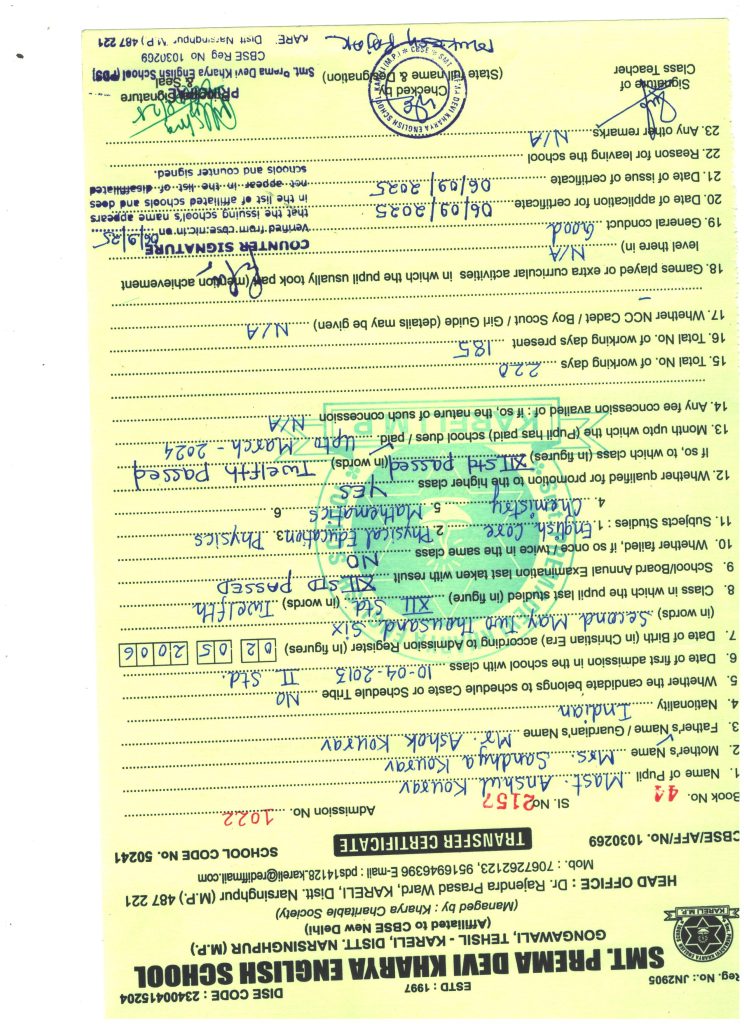 Reg. No.: JN2905 ESTD : 1997 DISE CODE : 23400415204
SMT. PREMA DEVI KHARYA ENGLISH SCHOOL
GONGAWALI, TEHSIL - KARELI, DISTT. NARSINGHPUR (M.P.)
(Affiliated to CBSE New Delhi)
(Managed by : Kharya Charitable Society)
HEAD OFFICE : Dr. Rajendra Prasad Ward, KARELI, Distt. Narsinghpur (M.P.) 487 221
Mob.: 7067262123, 9516946396 E-mail : pds14128.kareli@rediffmail.com
CBSE/AFF/No. 1030269 TRANSFER CERTIFICATE SCHOOL CODE No. 50241
Book No. 44 Sl. No. 2157 Admission No. 1022
1. Name of Pupil Mast. Anshul Kourav
2. Mother's Name Mrs. Sandhya Kourav
3. Father's Name / Guardian's Name Mr. Ashok Kourav
4. Nationality Indian
5. Whether the candidate belongs to schedule Caste or Schedule Tribe NO
6. Date of first admission in the school with class 10-04-2013 II Std.
7. Date of Birth (in Christian Era) according to Admission Register (in figures) 02 05 2006
(in words) Second May Two Thousand Six
8. Class in which the pupil last studied (in figure) XII Std. : (in words) Twelfth
9. School/Board Annual Examination last taken with result XII STD PASSED
10. Whether failed, if so once / twice in the same class NO
11. Subjects Studies : 1. English Core 2. Physical Education 3. Physics
4. Chemistry 5. Mathematics 6.
12. Whether qualified for promotion to the higher class YES
If so, to which class (in figures) XII Std passed (in words) Twelfth Passed
13. Month upto which the (Pupil has paid) school dues / paid Upto March - 2024
14. Any fee concession availed of : if so, the nature of such concession N/A
15. Total No. of working days 220
16. Total No. of working days present 185
17. Whether NCC Cadet / Boy Scout / Girl Guide (details may be given) N/A
18. Games played or extra curricular activities in which the pupil usually took part (mention achievement
level there in) N/A
19. General conduct Good
20. Date of application for certificate 06/09/2025
21. Date of issue of certificate 06/09/2025
22. Reason for leaving the school
23. Any other remarks N/A
COUNTER SIGNATURE
Verified from cbse.nic.in on 06/9/25
that the issuing school's name appears
in the list of affiliated schools and does
not appear in the list of disaffiliated
schools and counter signed.
Signature of
Class Teacher
Checked by
(State full name & Designation)
Signature
& Seal
PRINCIPAL
Smt. Prema Devi Kharya English School (PDS)
CBSE Reg No 1030269
KARE Distt Narsinghpur (M.P.) 487 221